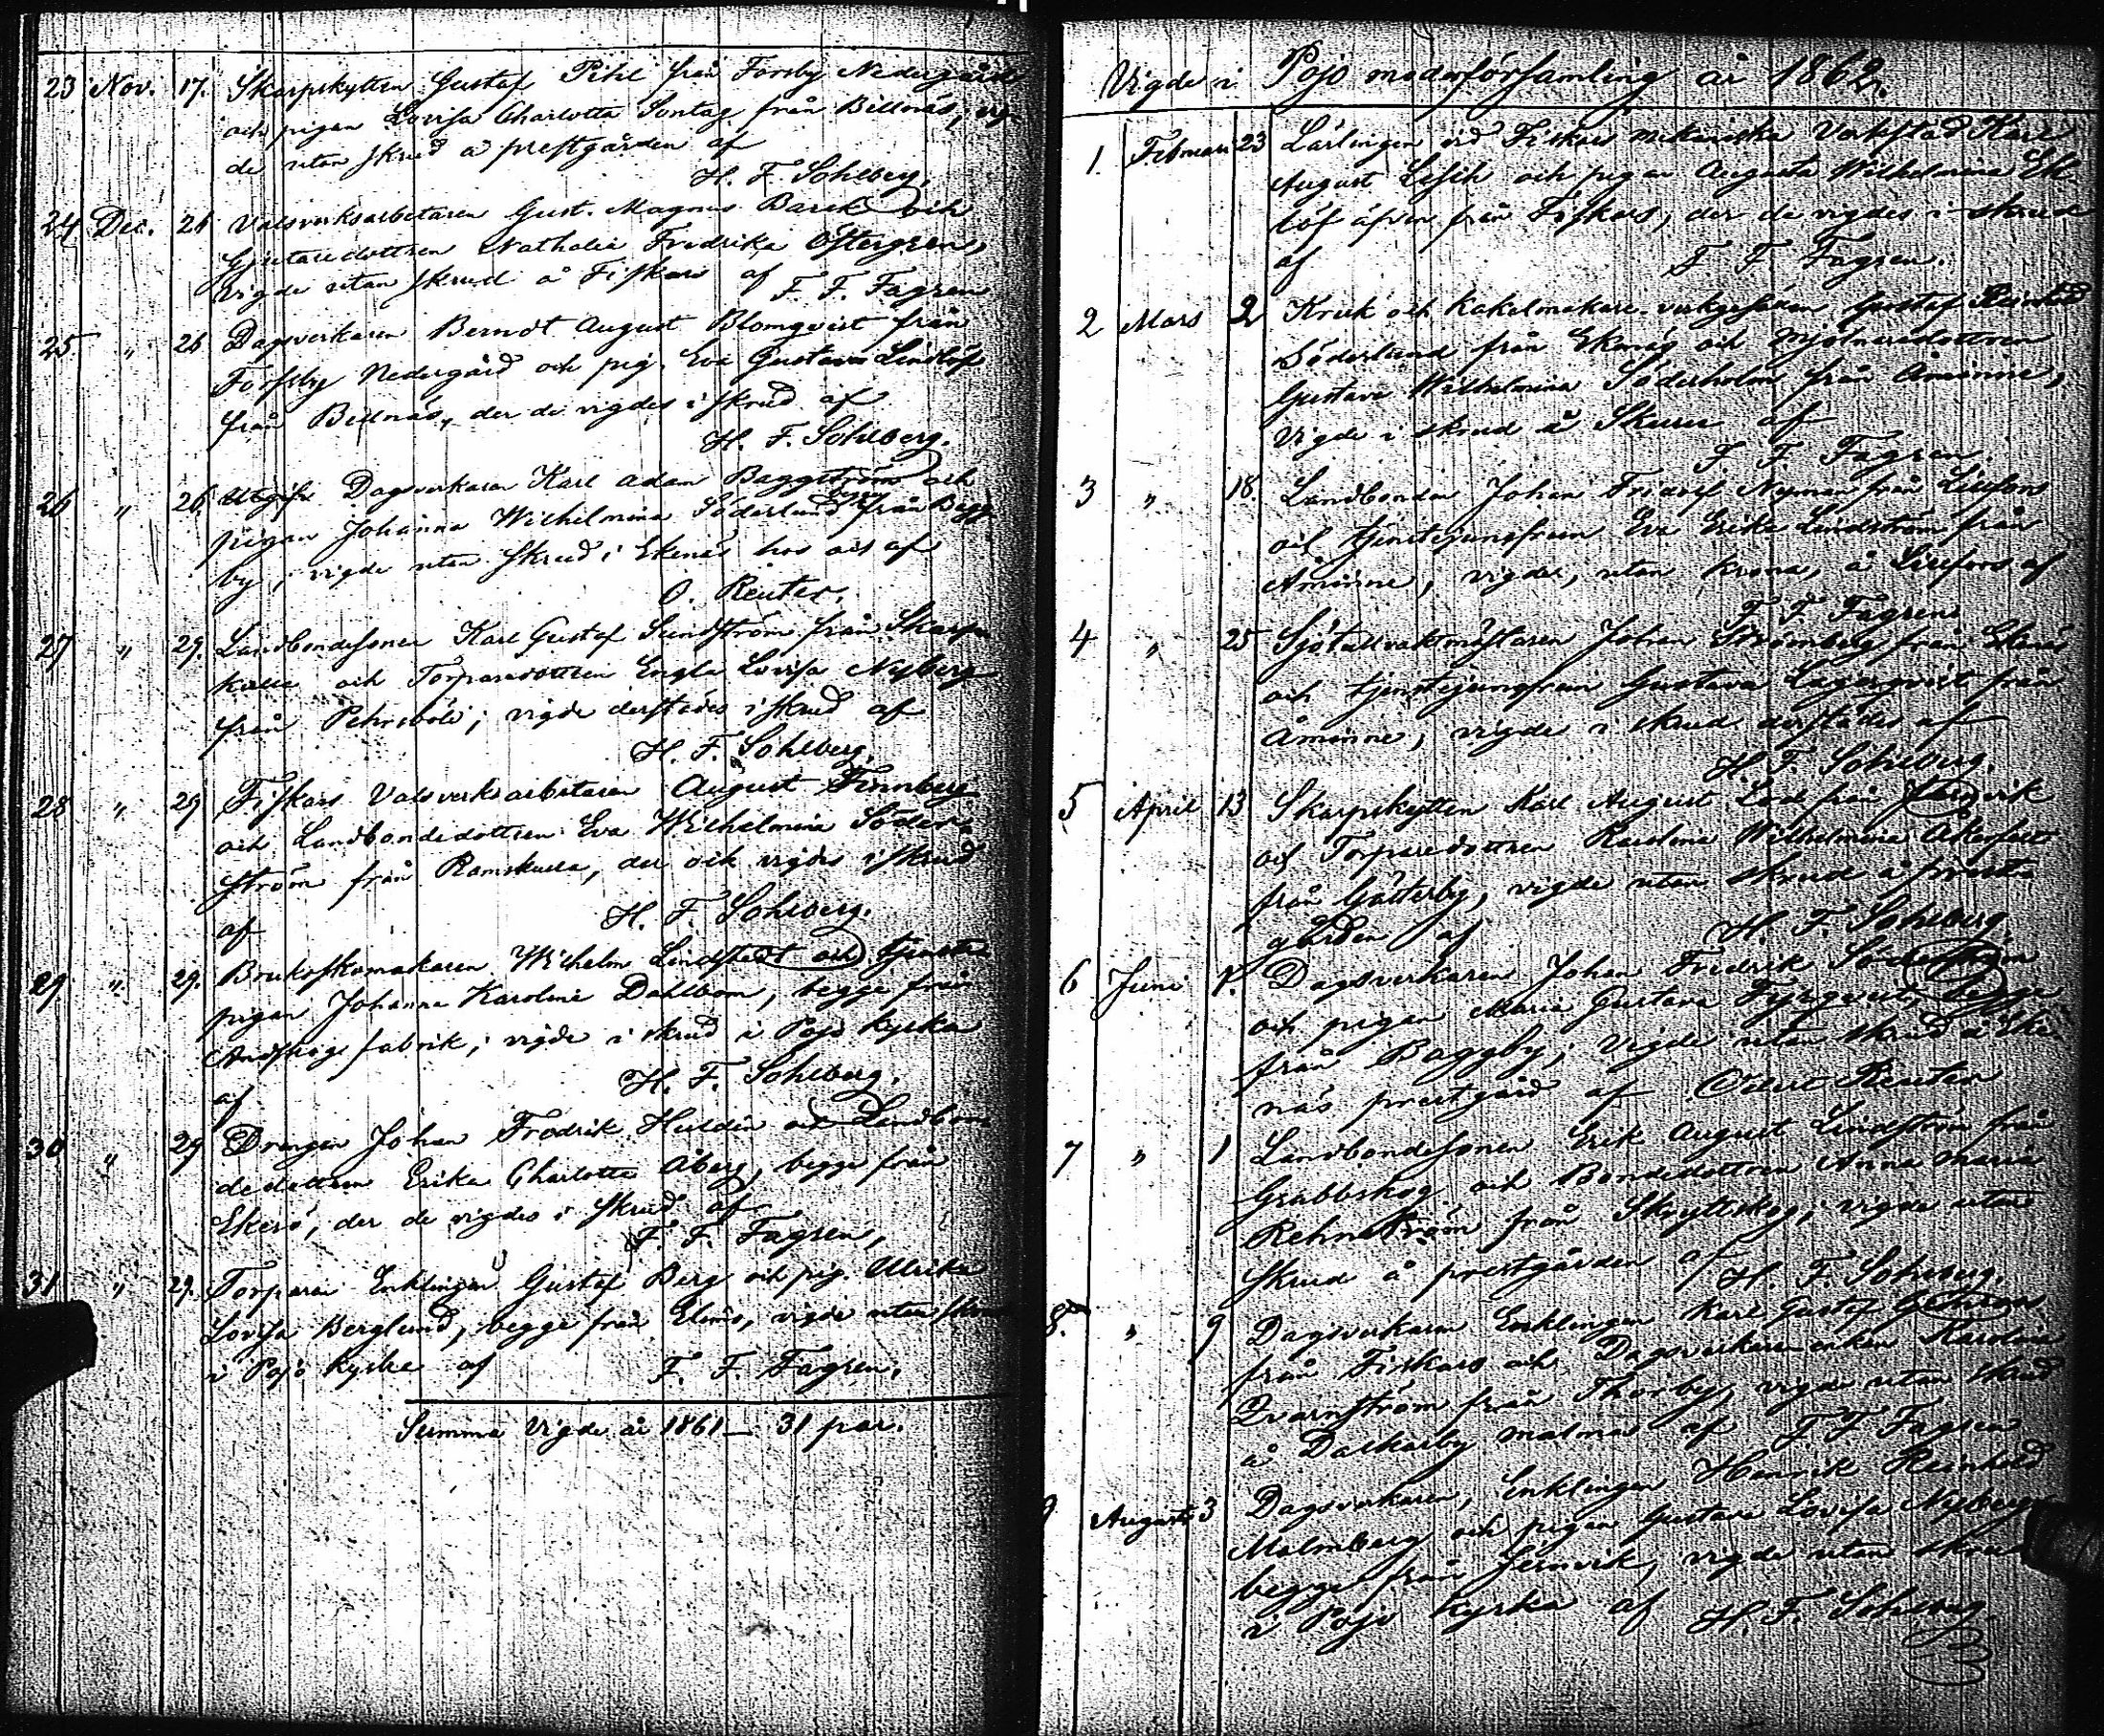 23 Nov. 17. Skarpskytten Gustaf Pihl från Forsby Nedergård
och pigan Lovisa Charlotta Sontag från Billnäs, vig-
de utan skrud å prestgården af
H. F. Sohlberg.
24 Dec. 26 Valsverksarbetaren Gust. Magnus Barck och
Gjutaredottren Nathalia Fredrika Östergren,
vigde utan skrud å Fiskars af F. F. Fagren
25 " 26 Dagsverkaren Berndt August Blomqvist från
Forsby Nedergård och pig. Eva Gustava Lindlöf
från Billnäs, der de vigdes i skrud af
H. F. Sohlberg.
26 " 26 Dagsverkaren Karl Adam Baggström och
pigan Johanna Wilhelmina Söderlund begge från Bagg-
by, vigde utan skrud i Ekenäs af
O. Reuter.
27 " 29. Landbondesonen Karl Gustaf Sundström från Skarp-
kulla och Torparedottren Engla Lovisa Nyberg
från Pehrsböle; vigde derstädes i skrud af
H. F. Sohlberg.
28 " 29 Fiskars Valsverksarbetaren August Finnberg
och Landbondedottren Eva Wilhelmina Söder-
ström från Ramskulla, der och vigdes i skrud
af H. F. Sohlberg.
29 " 29. Bruksskomakaren Wilhelm Lindstedt och tjenste-
pigan Johanna Karolina Dahlbom, begge från
fabrik; vigde i skrud i Pojo kyrka
af H. F. Sohlberg.
30 " 29 Drengen Johan Fredrik Huldin och Landbon-
dedottren Erika Charlotta Åberg, begge från
Ekerö, der de vigdes i skrud af
F. F. Fagren,
31 " 29. Torparen Enklingen Gustaf Berg och pig. Ulrika
Lovisa Berglund, begge från Elimo, vigde utan skrud
i Pojo kyrka af F. F. Fagren,
Summa Vigde år 1861 — 31 par.
Vigde i Pojo moderförsamling år 1862.
1. Februari 23 Lärlingen vid Fiskars mekaniska Verkstad Karl
August och pigan Augusta Wilhelmina Ek-
löf äfven från Fiskars, der de vigdes i skrud
af F. F. Fagren.
2 Mars 2 Kruk och Kakelmakare Gustaf Reinhold
Söderlund från Ekenäs och Mjölnaredottren
Gustava Wilhelmina Söderholm från Åminne,
vigde i skrud å Skuru af
F. F. Fagren.
3 " 18. Landbonden Johan Fridolf Nyman från Lillfors
och tjenstejungfrun Eva Erika Lindström från
Åminne, vigde, utan krona, å Lillfors af
F. F. Fagren.
4 " 25 Sjötullvaktmästaren Johan Strömberg från
och tjenstejungfrun Gustava Lagerqvist från
Åminne, vigde i skrud derstädes af
H. F. Sohlberg.
5 April 13 Skarpskytten Karl August från
och Torparedottren Karolina Wilhelmina Åkerfelt
från Gätterby, vigde utan skrud å prest-
gården af H. F. Sohlberg.
6 Juni 1. Dagsverkaren Johan Fredrik
och pigan Maria Gustava begge
från Baggby; vigde utan skrud å Eke-
näs prestgård af Reuter
7 " 1 Landbondesonen Erik August Lindström från
Grabbskog och Bondedottren Anna Maria
Rehnström från Skryttskog; vigde utan
skrud å prestgården af H. F. Sohlberg.
8. " 9 Dagsverkaren Enklingen Karl Gustaf
från Fiskars och Dagsverkare enkan Karolina
Qvarnström från Thorby, vigde utan skrud
å Dalkarby malmen af F. F. Fagren
9 Augusti 3 Dagsverkaren, Enklingen Henrik Reinhold
Malmberg och pigan Gustava Lovisa Nyberg
begge från Jernvik, vigde utan skrud
i Pojo kyrka af H. F. Sohlberg.